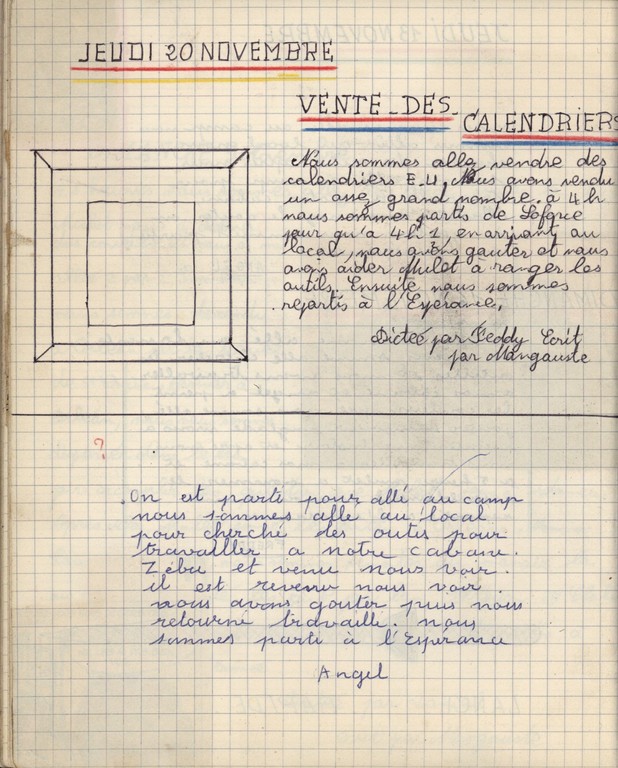 JEUDI 20 NOVEMBRE
VENTE_DES_
CALENDRIERS
Nous sommes allez vendre des
calendriers E.U. Nous avons vendu
un assez grand nombre. à 4h
nous sommes partis de
jour qu'a 4h. 1, en arrivant au
local, nous avons gouter et nous
avons aider Mulet à ranger les
outils. Ensuite nous sommes
repartis à l'Espérance.
Dictée par Teddy Ecrit
par Mangouste
?
On est parti pour allé au camp
nous sommes allé au local
pour cherché des outis pour
travailller a notre cabane.
Zébu et venu nous voir.
il est revenu nous voir.
nous avons gouter puis nous
retourné travaillé. nous
sommes parti à l'Esperance
Angel